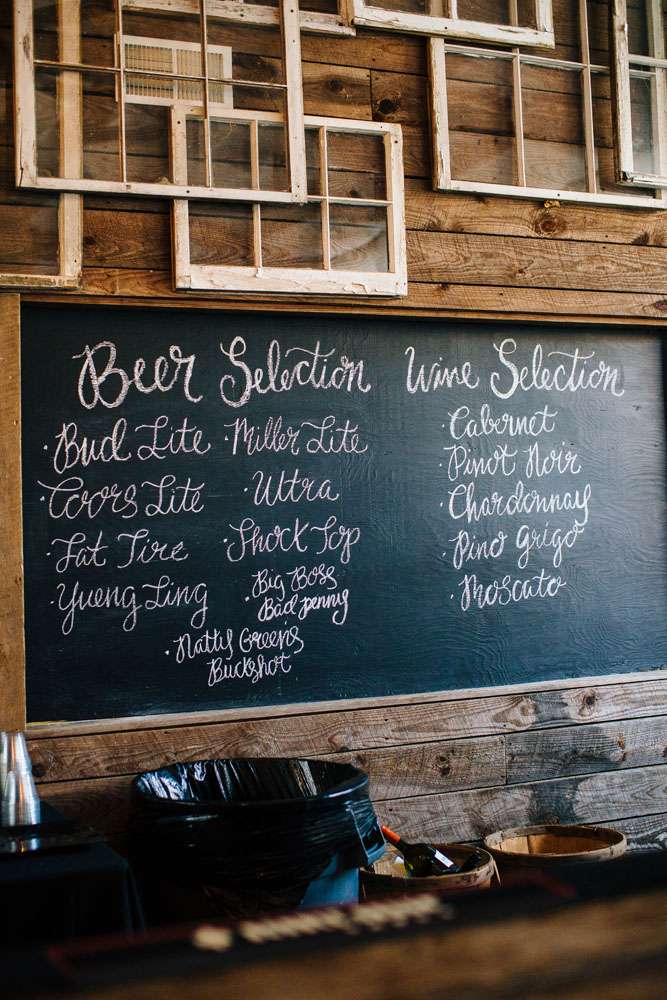 Beer Selection
· Bud Lite
· Miller Lite
· Coors Lite
· Ultra
· Fat Tire
· Shock Top
· Yueng Ling
· Big Boss
Bad penny
· Natty Greens
Buckshot
Wine Selection
· Cabernet
· Pinot Noir
· Chardonnay
· Pino Grigo
· Moscato